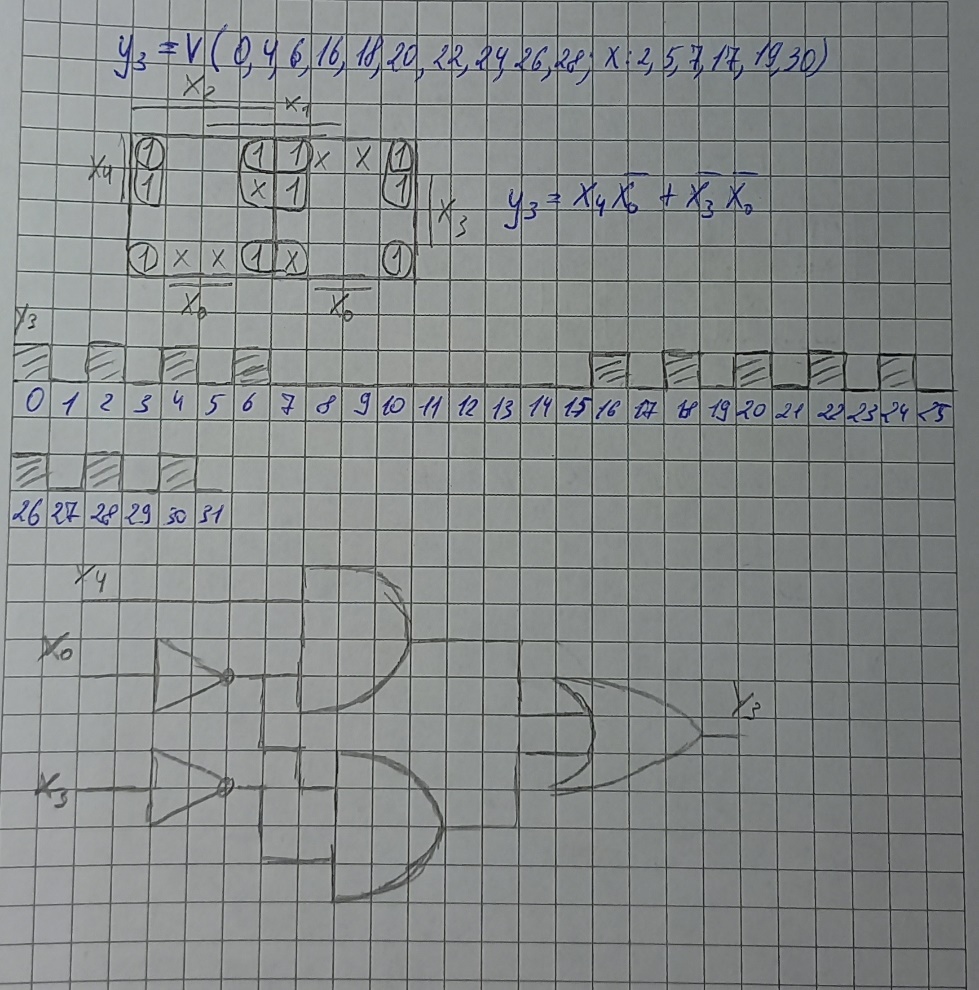 y₃ = V (0,4,6,16,18,20,22,24,26,28; x: 2,5,7,17,19,30)
x₂
x₁
x₄ 1 1 1 x x 1
1 x 1 1 x₃
y₃ = x₄x̅₀ + x̅₃ x̅₀
1 x x 1 x 1
x₀ x₀
y₃
0 1 2 3 4 5 6 7 8 9 10 11 12 13 14 15 16 17 18 19 20 21 22 23 24 25
26 27 28 29 30 31
x₄
x₀
y₃
x₃